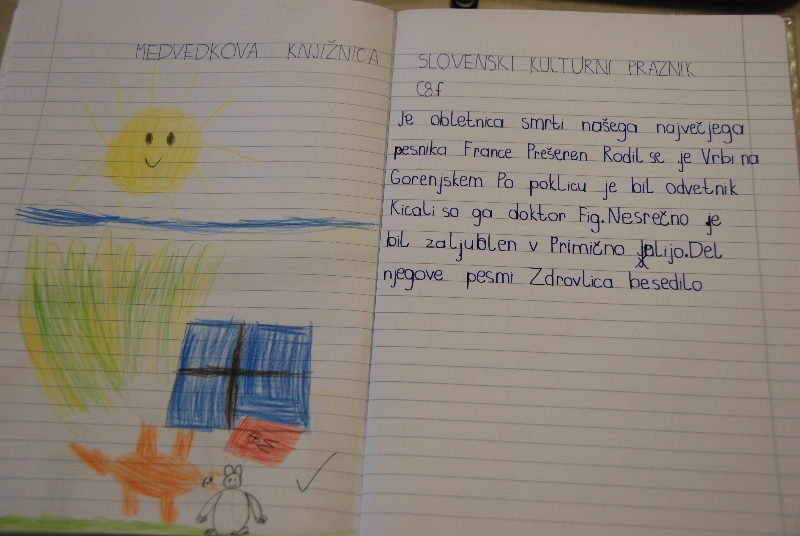 MEDVEDKOVA KNJIŽNICA
SLOVENSKI KULTURNI PRAZNIK
Je obletnica smrti našega največjega
pesnika France Prešeren Rodil se je Vrbi na
Gorenjskem Po poklicu je bil odvetnik
Kicali so ga doktor Fig. Nesrečno je
bil zaljublen v Primično Julijo. Del
njegove pesmi Zdravlica besedilo